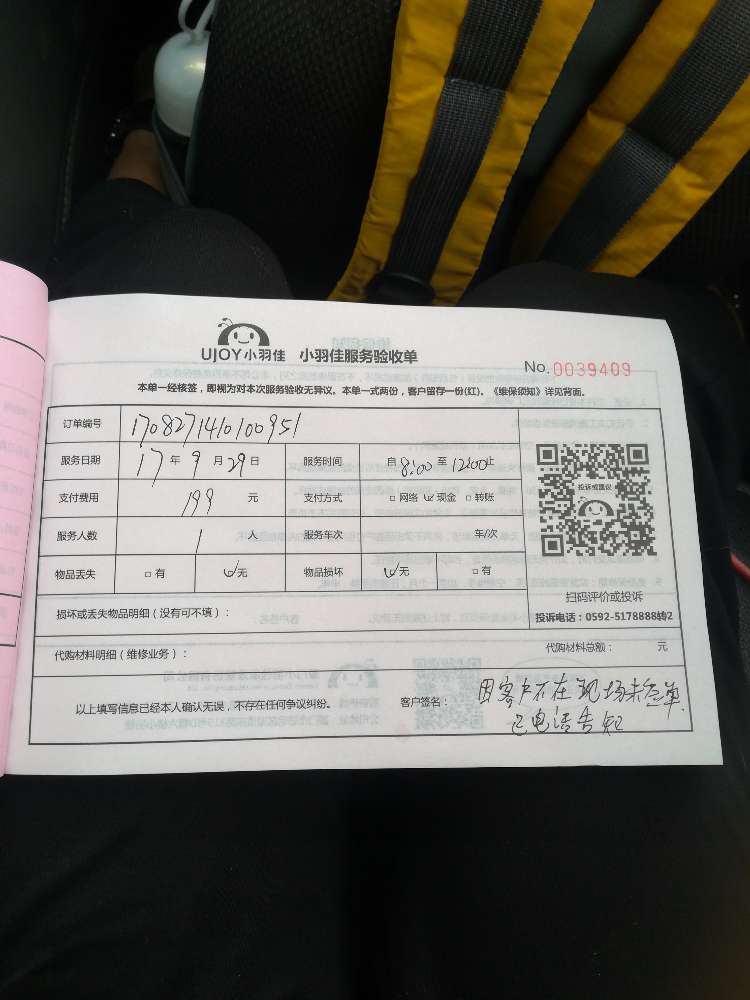 UJOY小羽佳 小羽佳服务验收单
No.0039409
本单一经核签，即视为对本次服务验收无异议。本单一式两份，客户留存一份(红)。《维保须知》详见背面。
订单编号 170827140100951
服务日期 17年9月29日 服务时间 自8:00至12:00止
投诉或建议
支付费用 199 元 支付方式 □网络 ☑现金 □转账
服务人数 1 人 服务车次 车/次
物品丢失 □有 ☑无 物品损坏 ☑无 □有
扫码评价或投诉
损坏或丢失物品明细（没有可不填）：
投诉电话：0592-5178888转2
代购材料明细（维修业务）： 代购材料总额： 元
以上填写信息已经本人确认无误，不存在任何争议纠纷。 客户签名： 因客户不在现场未签单
已电话告知